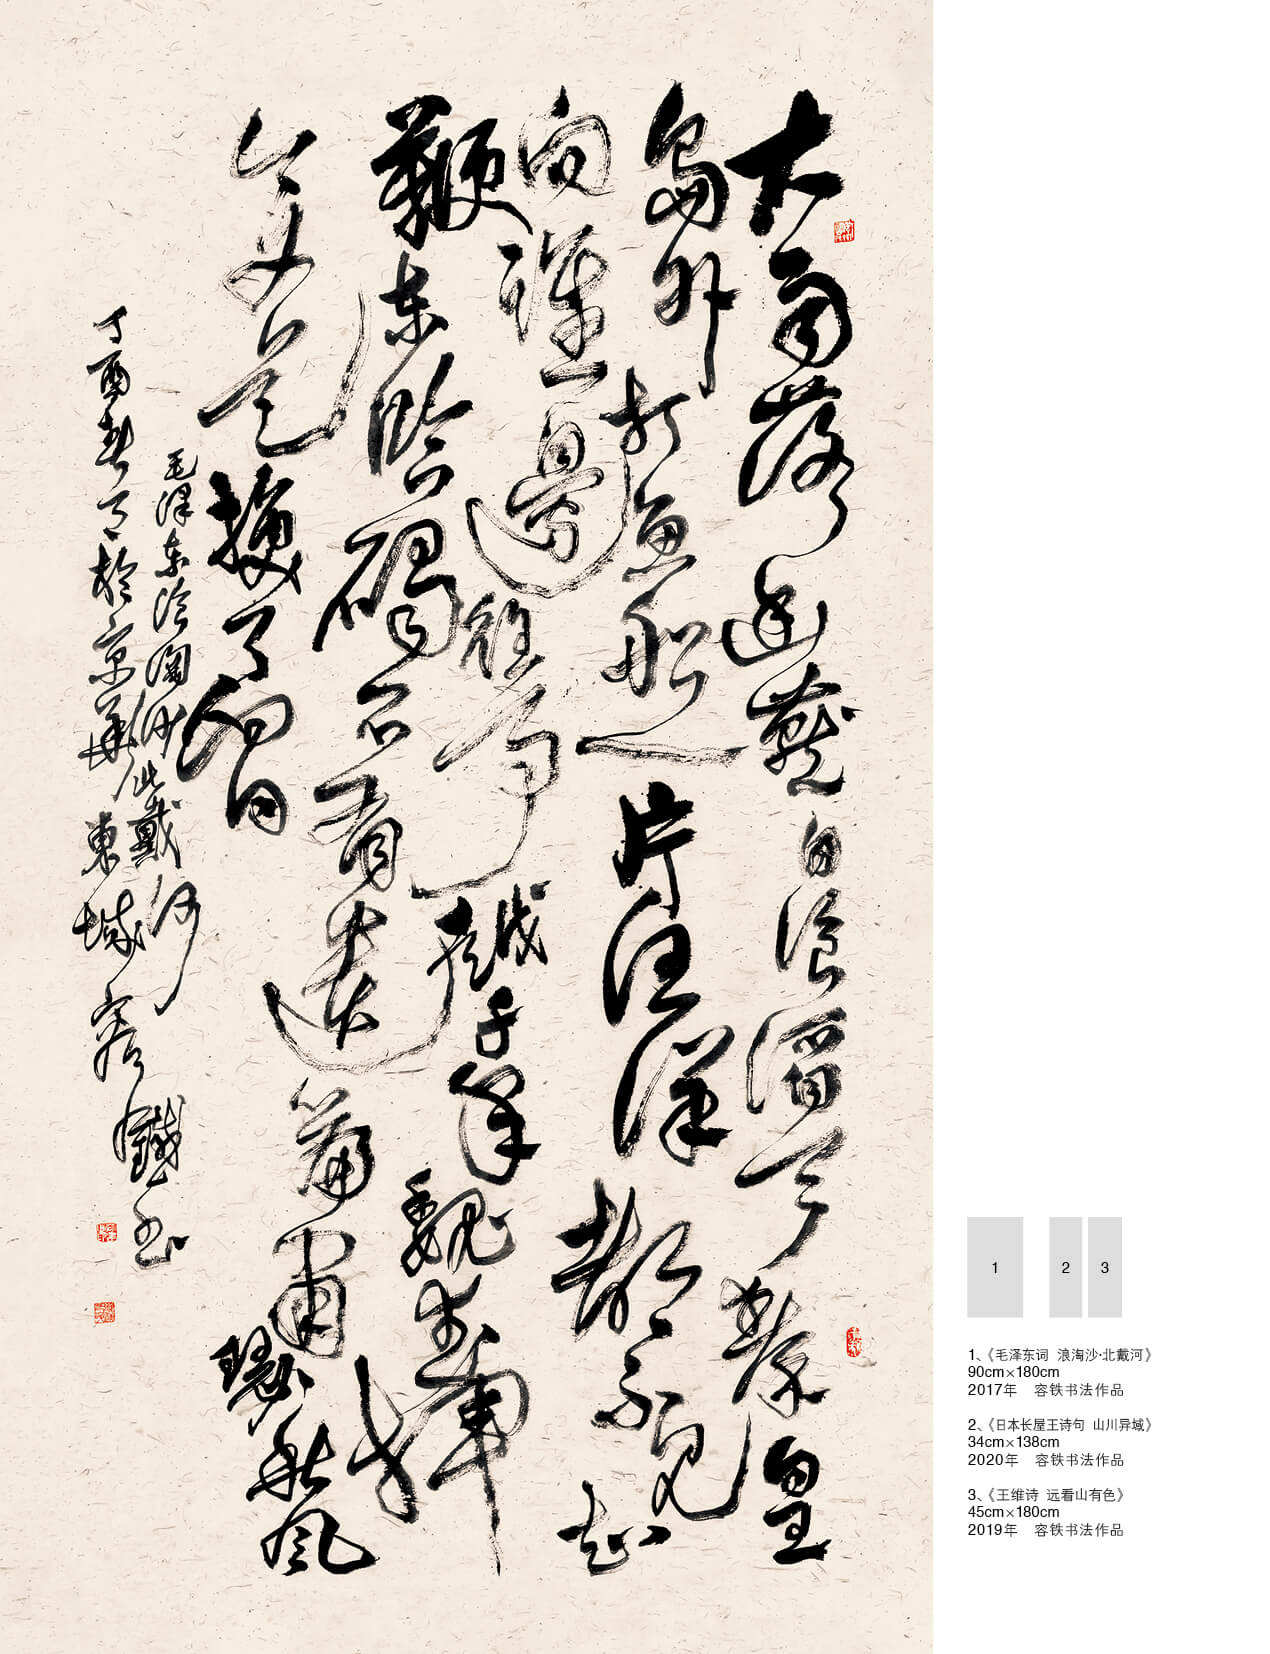 大雨落幽燕白浪滔天秦皇
島外打魚船一片汪洋都不見知
向誰邊往事越千年魏武揮
鞭東臨碣石有遺篇蕭瑟秋風
今又是換了人间
毛澤东浪淘沙北戴河
丁酉春月於京華東城容鐵书
1
2
3
1、《毛泽东词 浪淘沙·北戴河》
90cm×180cm
2017年 容铁书法作品
2、《日本长屋王诗句 山川异域》
34cm×138cm
2020年 容铁书法作品
3、《王维诗 远看山有色》
45cm×180cm
2019年 容铁书法作品